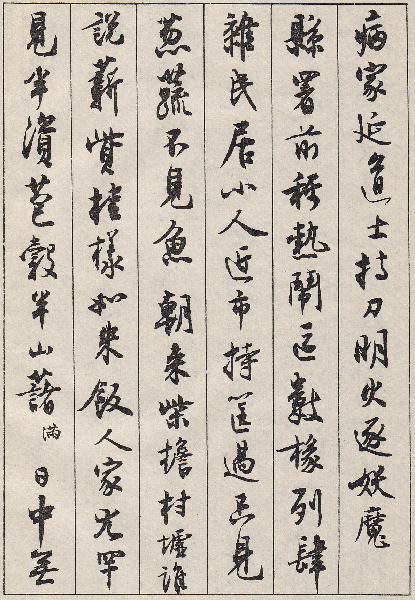 病家延道士持刀明火逐妖魔
縣署前稱熱鬧區數椽列肆
雜民居小人近市持筐過只見
葱蔬不見魚 朝来柴擔村墟誰
說薪貲桂樣如米飯人家尤罕
見半苞穀半山藷 滿 日中無